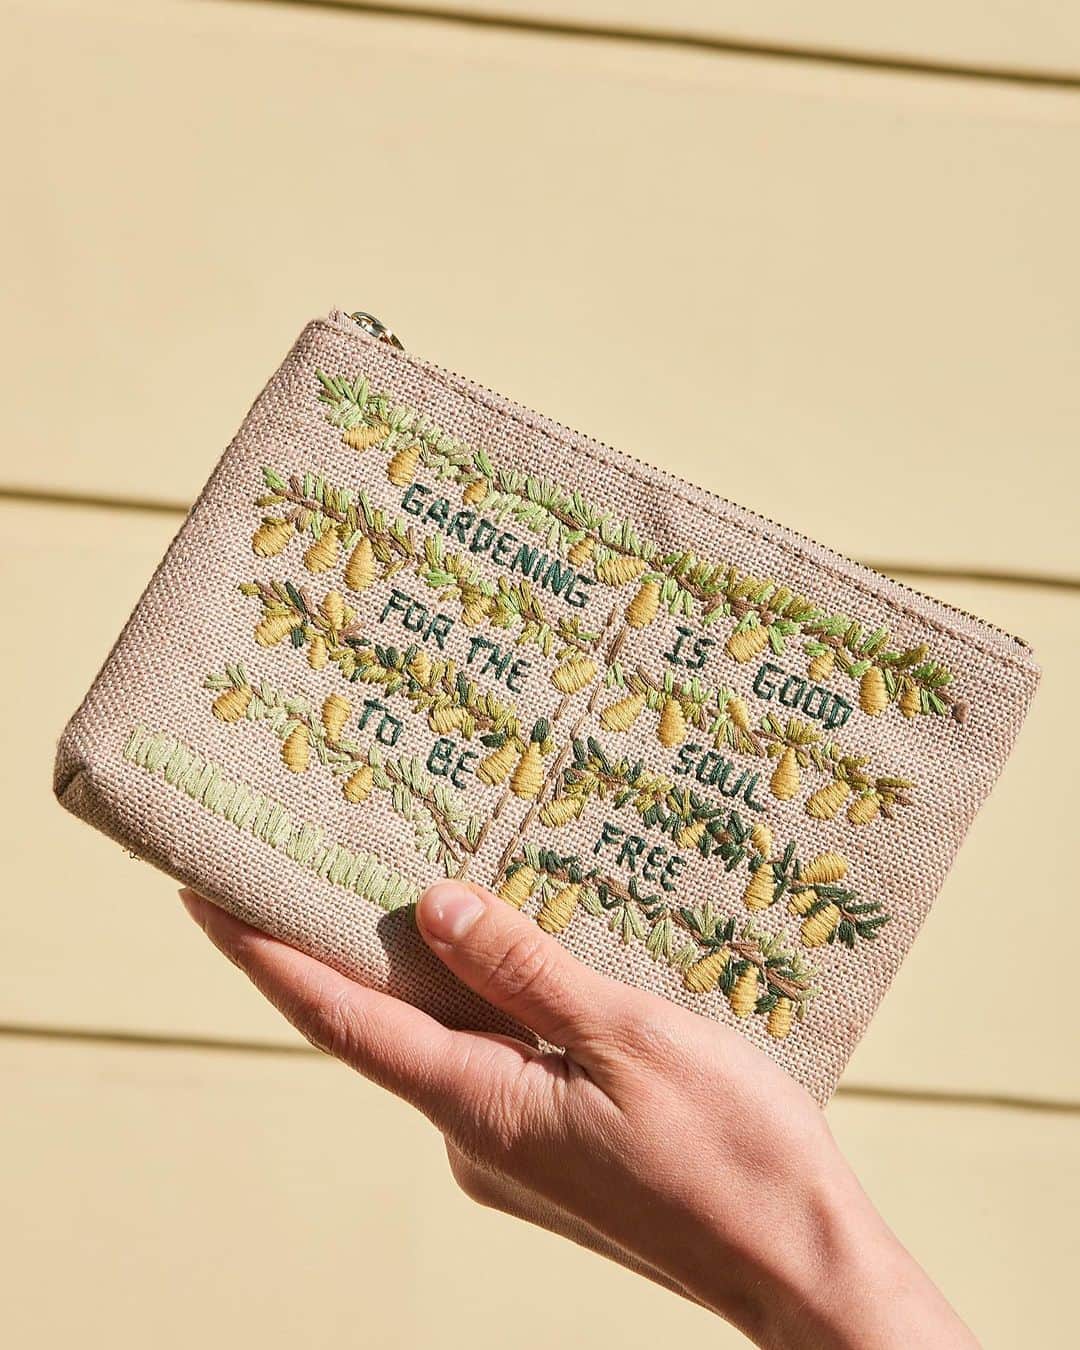 GARDENING IS GOOD
FOR THE SOUL
TO BE FREE